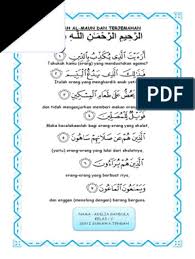 AL-MAUN DAN TERJEMAHAN
بِسْمِ اللَّهِ الرَّحْمَٰنِ الرَّحِيمِ
أَرَءَيْتَ ٱلَّذِى يُكَذِّبُ بِٱلدِّينِ ١
Tahukah kamu (orang) yang mendustakan agama?
فَذَٰلِكَ ٱلَّذِى يَدُعُّ ٱلْيَتِيمَ ٢
Itulah orang yang menghardik anak yatim,
وَلَا يَحُضُّ عَلَىٰ طَعَامِ ٱلْمِسْكِينِ ٣
dan tidak menganjurkan memberi makan orang miskin.
فَوَيْلٌ لِّلْمُصَلِّينَ ٤
Maka kecelakaanlah bagi orang-orang yang shalat,
ٱلَّذِينَ هُمْ عَن صَلَاتِهِمْ سَاهُونَ ٥
(yaitu) orang-orang yang lalai dari shalatnya,
ٱلَّذِينَ هُمْ يُرَآءُونَ ٦
orang-orang yang berbuat riya,
وَيَمْنَعُونَ ٱلْمَاعُونَ ٧
dan enggan (menolong dengan) barang berguna.
NAMA : ADELIA
KELAS : V
PDF